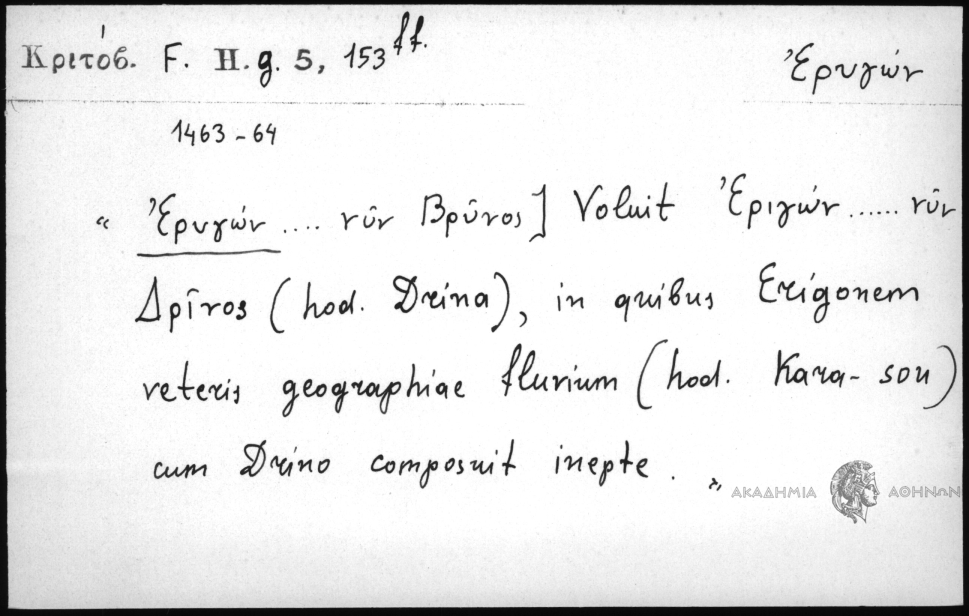 Κριτόβ. F. H. g. 5, 153 ff. Ἐρυγών
1463-64
“ Ἐρυγών .... νῦν Βρῦνος] Voluit Ἐριγών ...... νῦν
Δρῖνος (hod. Drina), in quibus Erigonem
veteris geographiae fluvium (hod. Kara-sou)
cum Drino composuit inepte. „
ΑΚΑΔΗΜΙΑ ΑΘΗΝΩΝ